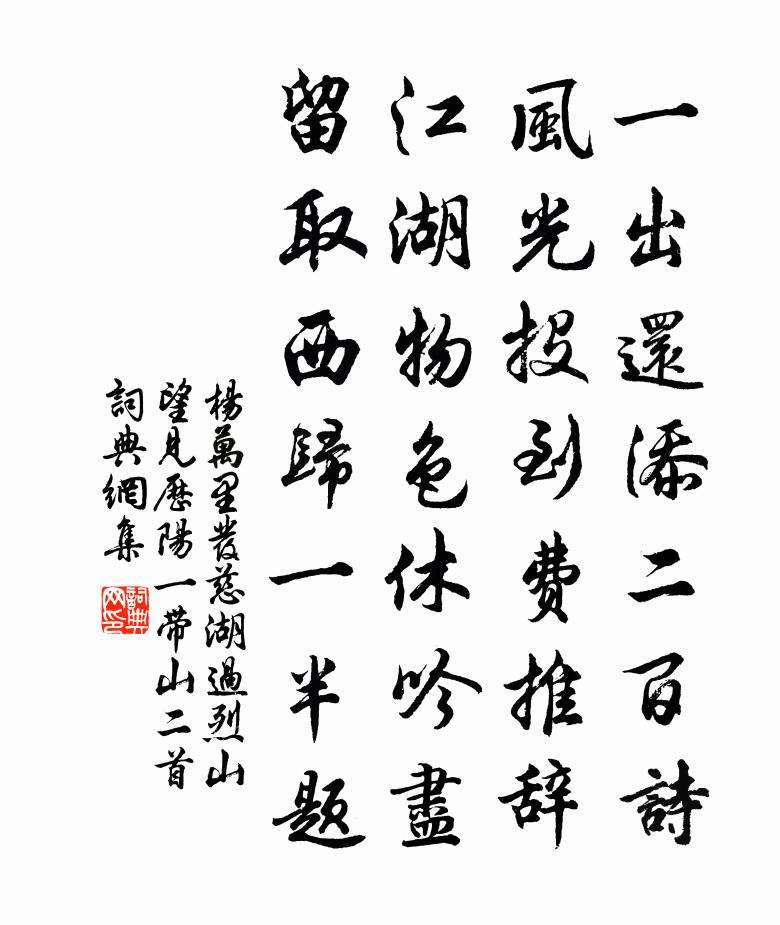 一出還添二百詩
風光投到費推辞
江湖物色休吟盡
留取西歸一半題
楊萬里發慈湖過烈山
望見歷陽一帶山二首
詞典網集
詞典
网印